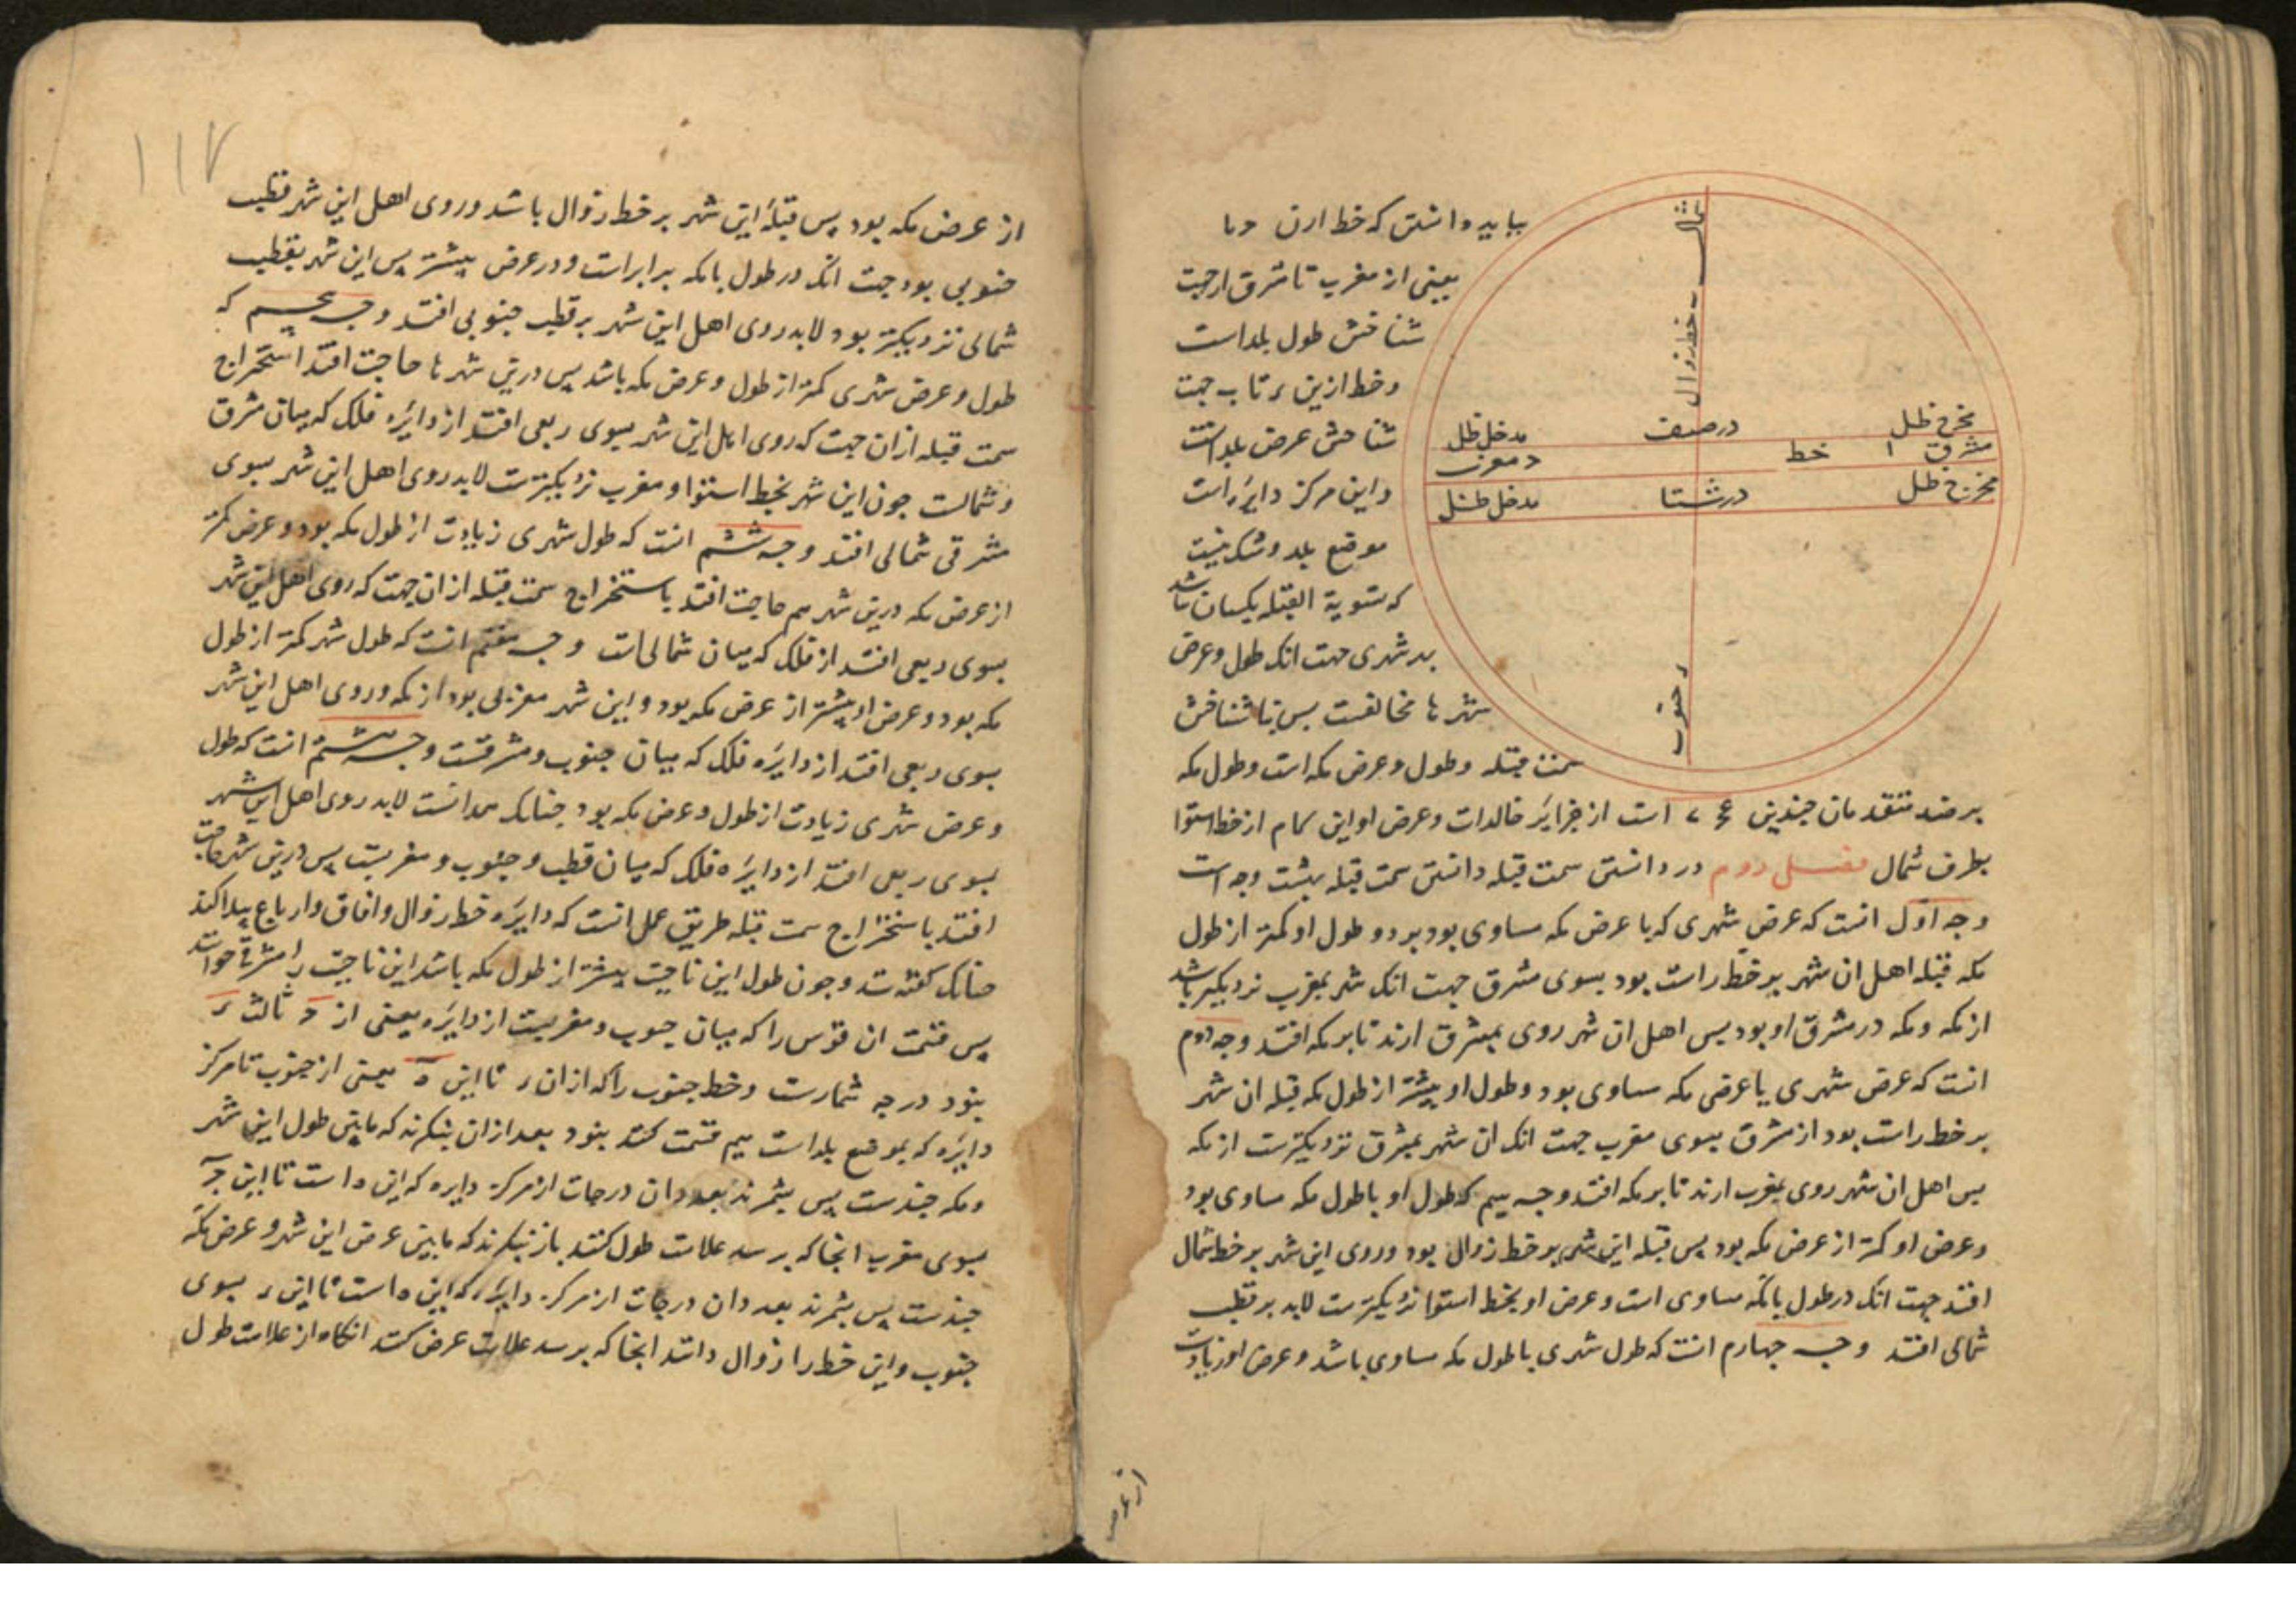 بباید دانستن که خط ارن دما
یعنی از مغرب تا مشرق ازجهت
شناختن طول بلد است
و خط ازین ر تا ب جهت
شناختن عرض بلد است
و این مرکز دایره است
موضع بلد و شک نیست
که تسویة القبله یکسان باشد
بهر شهری جهت انک طول و عرض
شهر ها مخالفست پس بنا شناختن
سمت قبله و طول و عرض مکه است و طول مکه
شمال
خط زوال
مخرج ظل
در صیف
مدخل ظل
مشرق ا
خط
د مغرب
مخرج ظل
در شتا
مدخل ظل
ر جنوب
بر صد متقدمان چندین است از جزایر خالدات و عرض او این کام از خط استوا
بطرف شمال فصل دوم در دانستن سمت قبله دانستن سمت قبله بهشت وجه است
وجه اول انست که عرض شهری که با عرض مکه مساوی بود بر دو طول او کمتر از طول
مکه قبله اهل ان شهر بر خط راست بود بسوی مشرق جهت انک شهر بمغرب نزدیکتر باشد
از مکه و مکه در مشرق او بود پس اهل ان شهر روی بمشرق ارند تا بر مکه افتد وجه دوم
انست که عرض شهری با عرض مکه مساوی بود و طول او بیشتر از طول مکه قبله ان شهر
بر خط راست بود از مشرق بسوی مغرب جهت انک ان شهر بمشرق نزدیکترست از مکه
پس اهل ان شهر روی بمغرب ارند تا بر مکه افتد وجه سیم که طول او با طول مکه مساوی بود
و عرض او کمتر از عرض مکه بود پس قبله این شهر بر خط زوال بود و روی این شهر بر خط شمال
افتد جهت انک در طول با مکه مساوی است و عرض او بخط استوا نزدیکترست لابد بر قطب
شمالی افتد وجه چهارم انست که طول شهری با طول مکه مساوی باشد و عرض او زیادت
از عرض
۱۱۷
از عرض مکه بود پس قبله این شهر بر خط زوال باشد و روی اهل این شهر قطب
جنوبی بود جهت انک در طول با مکه برابر است و در عرض بیشتر پس این شهر بقطب
شمالی نزدیکتر بود لابد روی اهل این شهر بر قطب جنوبی افتد وجه پنجم که
طول و عرض شهری کمتر از طول و عرض مکه باشد پس درین شهر ها حاجت افتد استخراج
سمت قبله ازان جهت که روی اهل این شهر بسوی ربعی افتد از دایره فلک که میان مشرق
و شمالست چون این شهر بخط استوا و مغرب نزدیکترست لابد روی اهل این شهر بسوی
مشرقی شمالی افتد وجه ششم انست که طول شهری زیادت از طول مکه بود و عرض کمتر
از عرض مکه درین شهر هم حاجت افتد باستخراج سمت قبله ازان جهت که روی اهل این شهر
بسوی ربعی افتد از فلک که میان شمالی است وجه هفتم انست که طول شهر کمتر از طول
مکه بود و عرض او بیشتر از عرض مکه بود و این شهر مغربی بود از مکه و روی اهل این شهر
بسوی ربعی افتد از دایره فلک که میان جنوب و مشرقست وجه هشتم انست که طول
و عرض شهری زیادت از طول و عرض مکه بود چنانک لابد روی اهل این شهر
بسوی ربعی افتد از دایره فلک که میان قطب و جنوب و مغربست پس درین شهر حاجت
افتد باستخراج سمت قبله طریق عمل انست که دایره خط زوال و افاق و ارباع پیدا کند
چنانک گفته شد و چون طول این ناحیت بیشتر از طول مکه باشد این ناحیت را مشرقی خوانند
پس قسمت ان قوس را که میان جنوب و مغربست از دایره یعنی از د ثالث ر
بنود درجه شمارست و خط جنوب را که ازان ر تا این ه یعنی از جنوب تا مرکز
دایره که بموضع بلد است هم قسمت کند بنود بعد ازان بنگرند که مابین طول این شهر
و مکه چندست پس بشمرند بعدد ان درجات از مرکز دایره که این ه است تا این
بسوی مغرب انجا که برسد علامت طول کنند باز بنگرند که مابین عرض این شهر و عرض مکه
چندست پس بشمرند بعدد ان درجات از مرکز دایره که این ه است تا این ر بسوی
جنوب و این خط را زوال دانند انجا که برسد علامت عرض کند انگاه از علامت طول